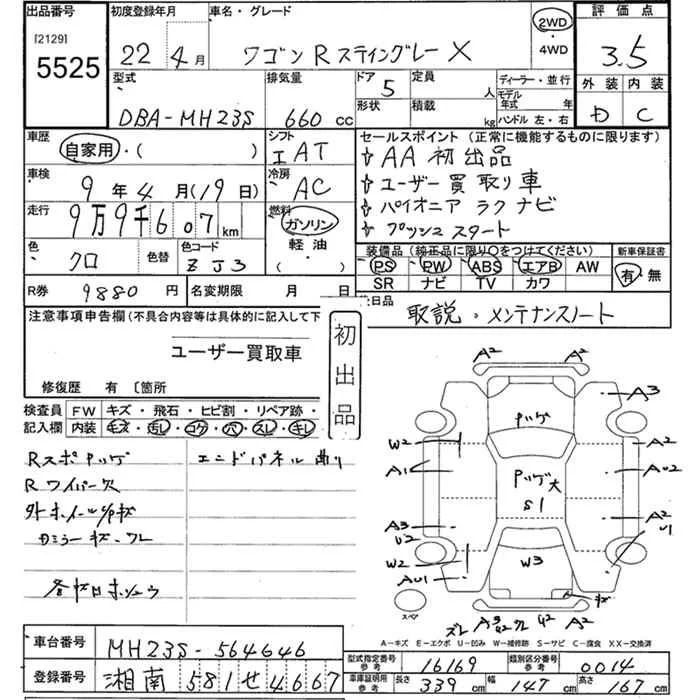 出品番号
[2129]
5525
初度登録年月
22年4月
車名・グレード
ワゴンRスティングレーX
2WD
・
4WD
評価点
3.5
外装 内装
D C
型式
DBA-MH23S
排気量
660 cc
ドア 5
形状
定員 人
積載 kg
ディーラー・並行
モデル年式 年
ハンドル 左・右
車歴
自家用・( )
シフト
AT
セールスポイント (正常に機能するものに限ります)
AA初出品
ユーザー買取り車
パイオニア ラクナビ
プッシュスタート
車検
9年4月(19日)
冷房
AC
走行
9万9千607km
燃料
ガソリン
軽油
( )
色
クロ
色替
色コード
ZJ3
装備品 (純正品に限り○をつけてください)
PS PW ABS エアB AW
SR ナビ TV カワ
新車保証書
有・無
R券 9880円
名変期限 月 日
欠日品
取説・メンテナンスノート
注意事項申告欄(不具合内容等は具体的に記入して下
ユーザー買取車
初出品
修復歴 有〔箇所
検査員記入欄
FW キズ・飛石・ヒビ割・リペア跡・
内装 キズ・汚し・コゲ・穴・スレ・キレ
Rワイパー欠
エンドパネル曲り
A2 A2
A3
W2 A2
A1 AU2
A3 A2
U2 U1
W2
AU1
S1
W3
スペア
A2
A-キズ E-エクボ U-凹み W-補修跡 S-サビ C-腐食 XX-交換済
車台番号 MH23S-564646
登録番号 湘南581せ4667
型式指定番号 参考 16169
類別区分番号 参考 0014
車庫証明用 参考 長さ 339cm 幅 147cm 高さ 167cm